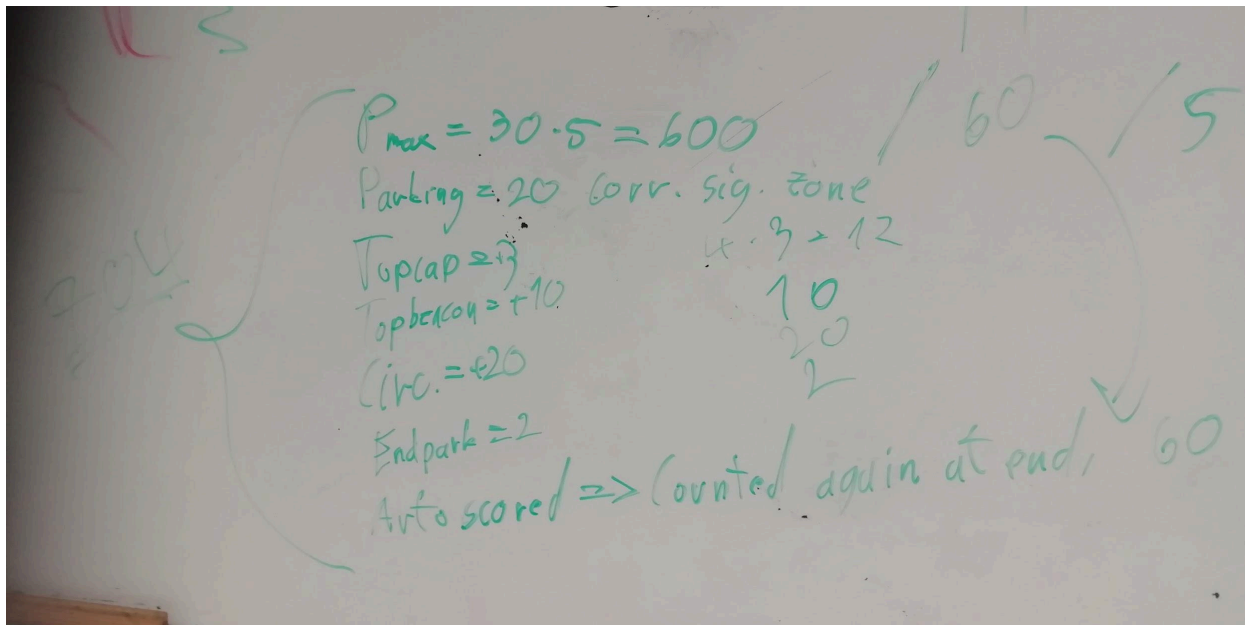 S
P max = 30 · 5 = 600 / 60 / 5
Parking = 20 Corr. sig. zone
Topcap = +3 4 · 3 = 12
Topbeacon = +10 10
Circ. = +20 20
Endpark = 2 2
Auto scored => Counted again at end, 60